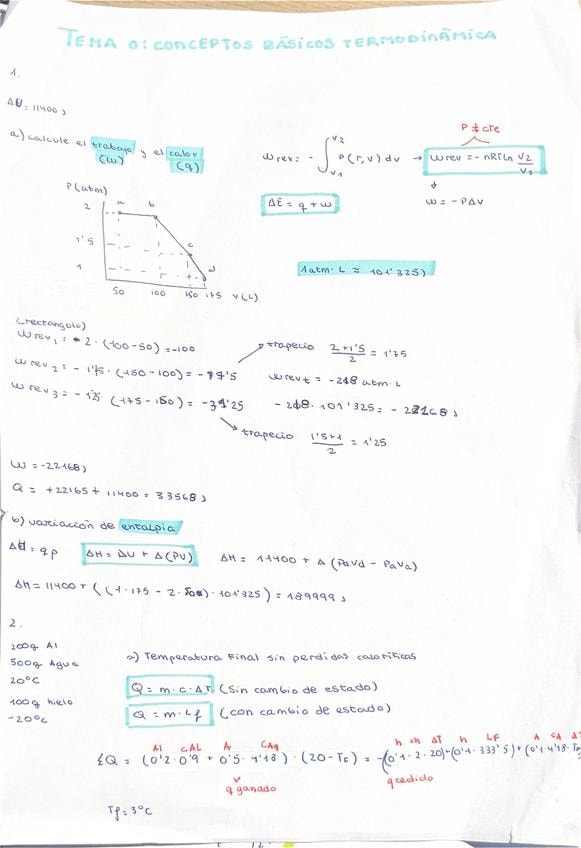 TEMA 0: CONCEPTOS BÁSICOS TERMODINÁMICA
1.
ΔU = 11400 J
a) calcule el trabajo y el calor
(w) (q)
P ≠ cte
Wrev: - ∫ V2 V1 P(T,V) dV → Wrev = - nRT ln V2/V1
ΔE = q + w
w = - PΔV
P(atm)
2 a b
1'5 c
1 d
50 100 150 175 V(L)
1 atm·L ≈ 101'325 J
(rectangulo)
Wrev1 = - 2 · (100-50) = -100
trapecio 2+1'5/2 = 1'75
Wrev2 = - 1'75 · (150-100) = - 87'5
Wrev t = -218 atm·L
Wrev3 = - 1'25 · (175-150) = -31'25
-218 · 101'325 = - 22168 J
trapecio 1'5+1/2 = 1'25
W = -22168 J
Q = +22165 + 11400 = 33568 J
b) variación de entalpia
ΔH = qp ΔH = ΔU + Δ(PV) ΔH = 11400 + Δ (PdVd - PaVa)
ΔH = 11400 + ((1·175 - 2·50) · 101'325) = 189999 J
2.
200g Al
500g Agua
20ºC
100g hielo
-20ºC
a) Temperatura Final sin perdidas calorificas
Q = m·c·ΔT (sin cambio de estado)
Q = m·Lf (con cambio de estado)
Al cAL A CAg h ch ΔT h Lf A CA ΔT
ΣQ = (0'2·0'9 + 0'5·4'18) · (20-TF) = -(0'1·2·20)+(0'1·333'5)+(0'1·4'18·TF)
q ganado
q cedido
Tf = 3ºC